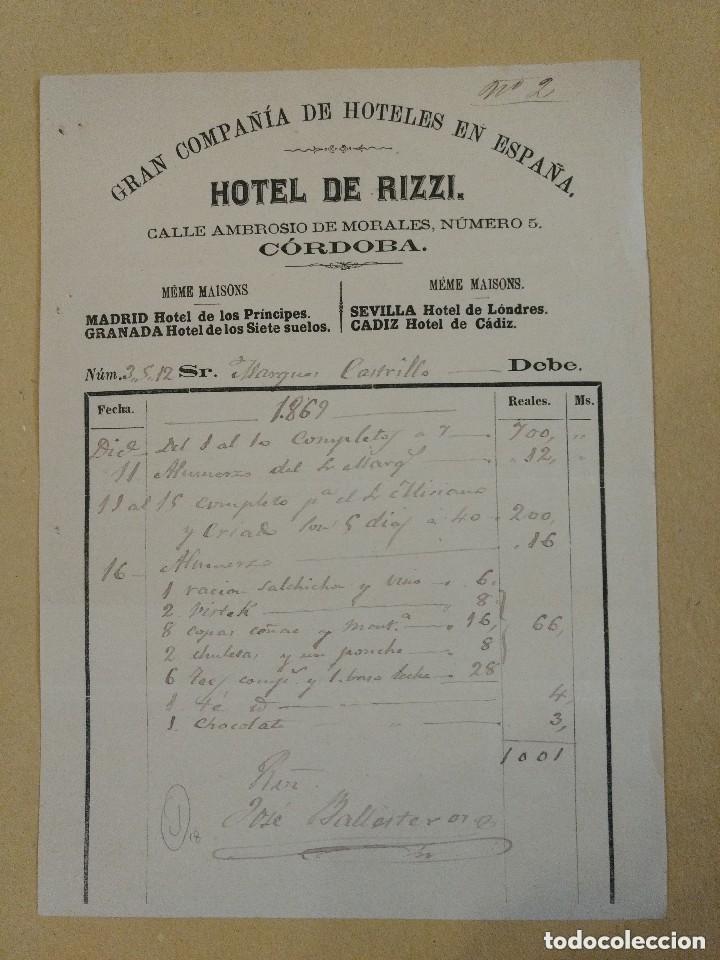 Nº 2
GRAN COMPAÑÍA DE HOTELES EN ESPAÑA.
HOTEL DE RIZZI.
CALLE AMBROSIO DE MORALES, NÚMERO 5.
CÓRDOBA.
MÉME MAISONS
MADRID Hotel de los Príncipes.
GRANADA Hotel de los Siete suelos.
MÉME MAISONS.
SEVILLA Hotel de Lóndres.
CADIZ Hotel de Cádiz.
Núm. 3,5,12 Sr. Marques Castrillo Debe.
Fecha. 1869 Reales. Ms.
Dice Del 1 al 10 completo a 7 700, "
11 Almuerzo del S. Marqs 12, "
11 al 15 completo pa el S.
y Criado por 5 dias a 40 200,
16 Almuerzo 16
1 racion salchicha y vino 6
2 Vistek 8
8 copas coñac y mont.a 16, 66,
2 chuletas y un ponche 8
6 y 1 baso leche 28
1 té id 4,
1 Chocolate " " 3,
1001
Rvi
José Ballesteros
J
18
todocoleccion
todocoleccion.net